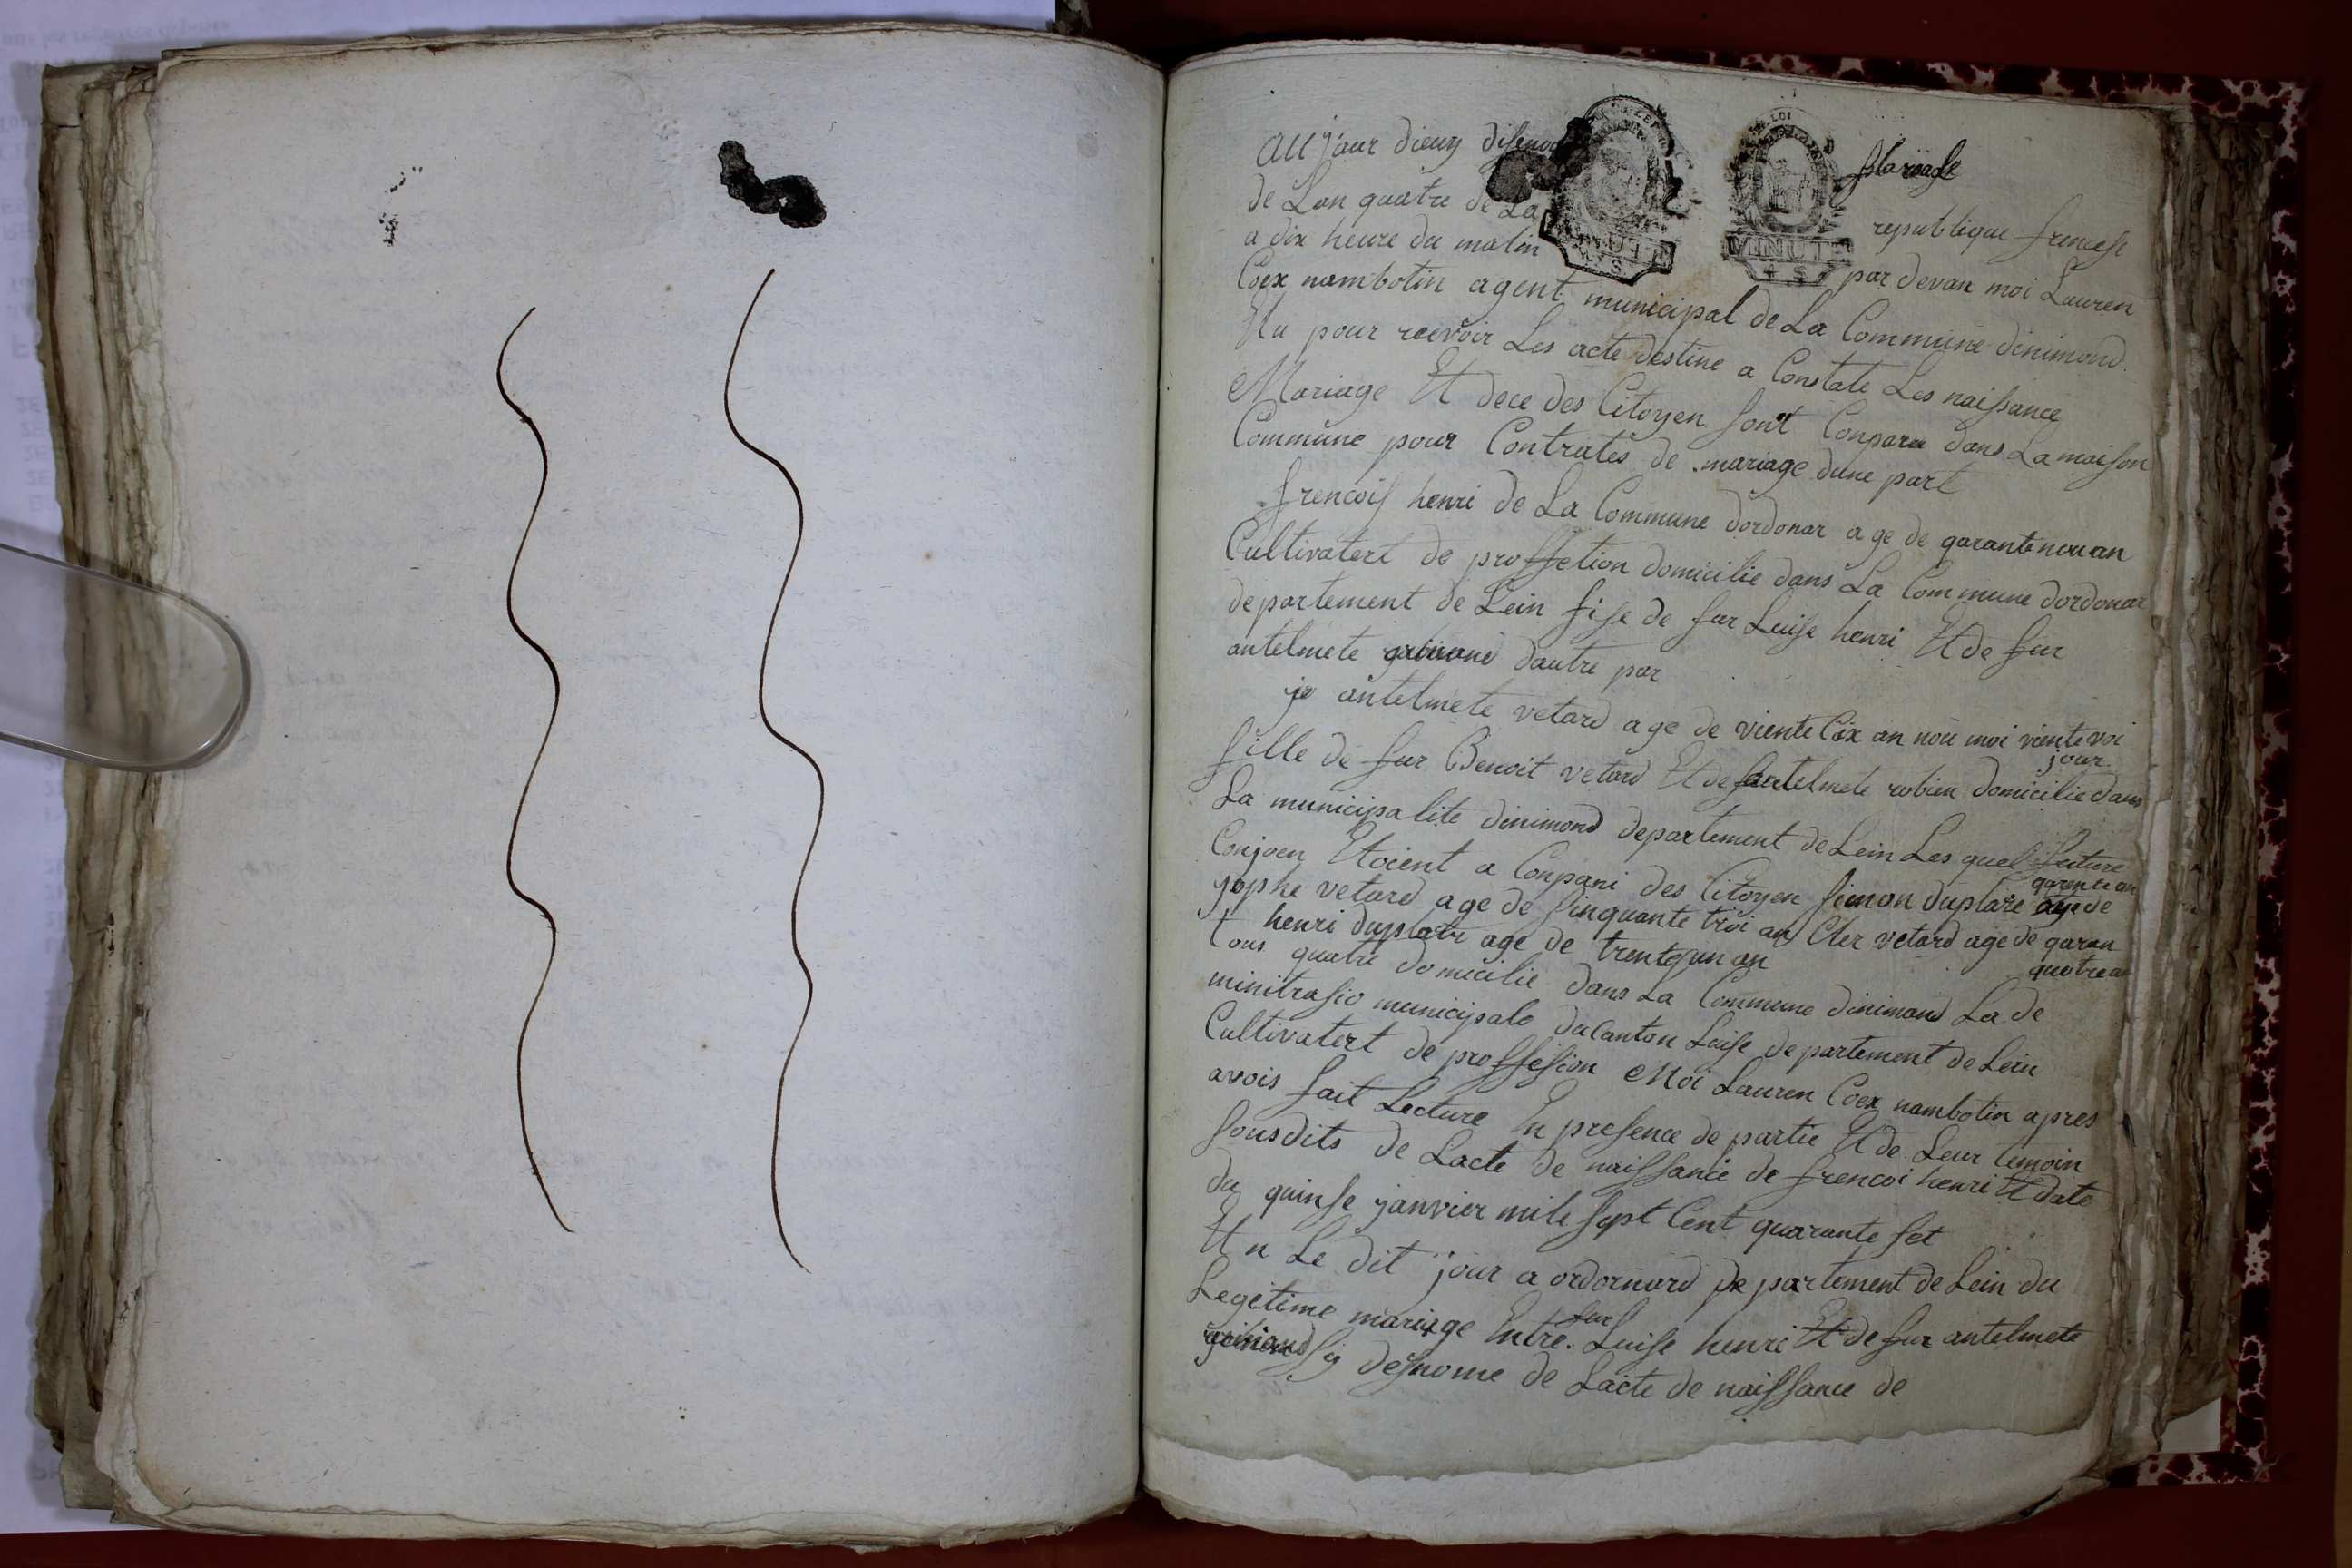 au jour dieuy
Mariage
de Lan quatre de La republique francese
a dix heure du matin par devan moi Lauren
Coex nambotin agent municipal de La Commune dinimond
Elu pour recevoir Les acte destine a Constate Les naissance
Mariage Et dece des Citoyen sont Conparu dans La maison
Commune pour Contrates de mariage dune part
frencois henri de La Commune dordonar age de garante nou an
Cultivatert de proffetion domicilie dans La Commune dordonar
departement de Lein fise de fur Luise henri Et de fur
antelmete dautre par
je antelmete vetard age de viente Cix an nou moi viente voi
jour
fille de fur Benoit vetard Et de antelmete robin domicilie dans
La municipalite dinimond departement de Lein Les quel future
Conjoen Etoient a Conpani des Citoyen simon duplare age de
garente an
josphe vetard age de sinquante troi an Cler vetard age de garan
quatre an
henri duplatr age de trente un an
tous quatre domicilie dans La Commune dinimond La de
minitrasio municipale du Canton Luise departement de Lein
Cultivatert de proffesion Moi Lauren Coex nambotin apres
avois fait Lecture En presence de partie Et de Leur temoin
sousdits de Lacte de naissance de frencoi henri Et date
du quinse janvier mile sept Cent quarante set
Un Le dit jour a ordornard departement de Lein du
Legetime mariage Entre fur Luise henri Et de fur antelmete
sy desnome de Lacte de naissance de
MINUT
4 S
LA LOI
MINUT
4 S